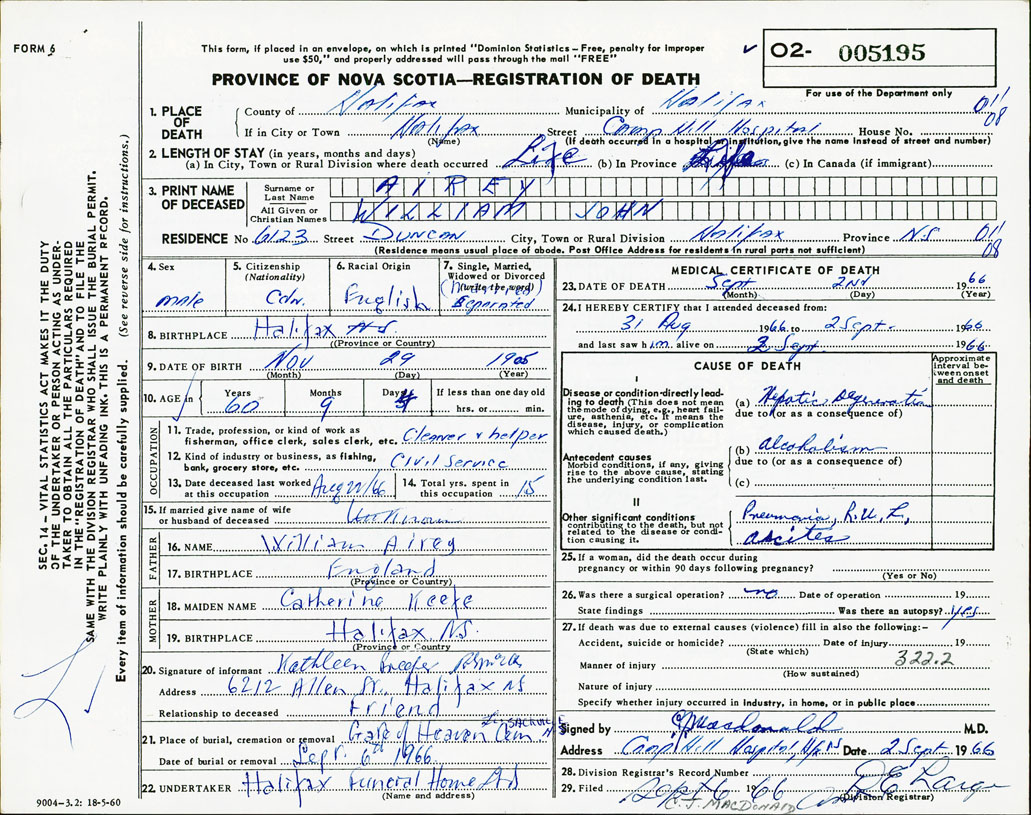 FORM 6
This form, if placed in an envelope, on which is printed "Dominion Statistics – Free, penalty for improper
use $50," and properly addressed will pass through the mail "FREE"
PROVINCE OF NOVA SCOTIA—REGISTRATION OF DEATH
✓ 02- 005195
For use of the Department only
SEC. 14 – VITAL STATISTICS ACT MAKES IT THE DUTY
OF THE UNDERTAKER OR PERSON ACTING AS UNDER-
TAKER TO OBTAIN ALL THE PARTICULARS REQUIRED
IN THE "REGISTRATION OF DEATH" AND TO FILE THE
SAME WITH THE DIVISION REGISTRAR WHO SHALL ISSUE THE BURIAL PERMIT.
WRITE PLAINLY WITH UNFADING INK. THIS IS A PERMANENT RECORD.
Every item of information should be carefully supplied. (See reverse side for instructions.)
1. PLACE OF DEATH
County of Halifax Municipality of Halifax 011
08
If in City or Town Halifax Street Camp Hill Hospital House No.
(Name) (If death occurred in a hospital or institution, give the name instead of street and number)
2. LENGTH OF STAY (in years, months and days)
(a) In City, Town or Rural Division where death occurred Life (b) In Province Life (c) In Canada (if immigrant)
3. PRINT NAME OF DECEASED
Surname or Last Name AIREY
All Given or Christian Names WILLIAM JOHN
RESIDENCE No 6123 Street DUNCAN City, Town or Rural Division Halifax Province NS 011
08
(Residence means usual place of abode. Post Office Address for residents in rural parts not sufficient)
4. Sex
male
5. Citizenship
(Nationality)
Cdn.
6. Racial Origin
English
7. Single, Married,
Widowed or Divorced
(write the word)
(Married)
Separated
8. BIRTHPLACE Halifax N.S.
(Province or Country)
9. DATE OF BIRTH Nov 29 1905
(Month) (Day) (Year)
10. AGE in Years 60 Months 9 Days 4 If less than one day old
hrs. or min.
OCCUPATION
11. Trade, profession, or kind of work as
fisherman, office clerk, sales clerk, etc. Cleaner & helper
12. Kind of industry or business, as fishing,
bank, grocery store, etc. Civil Service
13. Date deceased last worked
at this occupation Aug 22/66
14. Total yrs. spent in
this occupation 15
15. If married give name of wife
or husband of deceased Unknown
FATHER
16. NAME William Airey
17. BIRTHPLACE England
(Province or Country)
MOTHER
18. MAIDEN NAME Catherine Keefe
19. BIRTHPLACE Halifax N.S.
(Province or Country)
20. Signature of informant Kathleen
Address 6212 Allen St., Halifax NS
Relationship to deceased Friend
21. Place of burial, cremation or removal Gate of Heaven Cem Lr SACKVILLE
N.S.
Date of burial or removal Sept. 6th 1966
22. UNDERTAKER Halifax Funeral Home Ltd
(Name and address)
9004–3.2: 18-5-60
MEDICAL CERTIFICATE OF DEATH
23. DATE OF DEATH Sept 2nd 1966
(Month) (Day) (Year)
24. I HEREBY CERTIFY that I attended deceased from:
31 Aug 1966 to 2 Sept. 1966
and last saw him alive on 2 Sept. 1966
CAUSE OF DEATH
Approximate
interval be-
tween onset
and death
I
Disease or condition directly lead-
ing to death (This does not mean
the mode of dying, e.g., heart fail-
ure, asthenia, etc. It means the
disease, injury, or complication
which caused death.)
(a) Hepatic Degeneration
due to (or as a consequence of)
Antecedent causes
Morbid conditions, if any, giving
rise to the above cause, stating
the underlying condition last.
(b) Alcoholism
due to (or as a consequence of)
(c)
II
Other significant conditions
contributing to the death, but not
related to the disease or condi-
tion causing it.
Pneumonia, R.U.L,
Ascites
25. If a woman, did the death occur during
pregnancy or within 90 days following pregnancy?
(Yes or No)
26. Was there a surgical operation? no Date of operation 19
State findings Was there an autopsy? yes
27. If death was due to external causes (violence) fill in also the following:–
Accident, suicide or homicide? Date of injury 19
(State which)
322.2
Manner of injury
(How sustained)
Nature of injury
Specify whether injury occurred in industry, in home, or in public place
Signed by CJMacdonald M.D.
Address Camp Hill Hospital, Hfx NS Date 2 Sept 1966
28. Division Registrar's Record Number
29. Filed Sept 6 1966
(Division Registrar)
C. J. MACDONALD